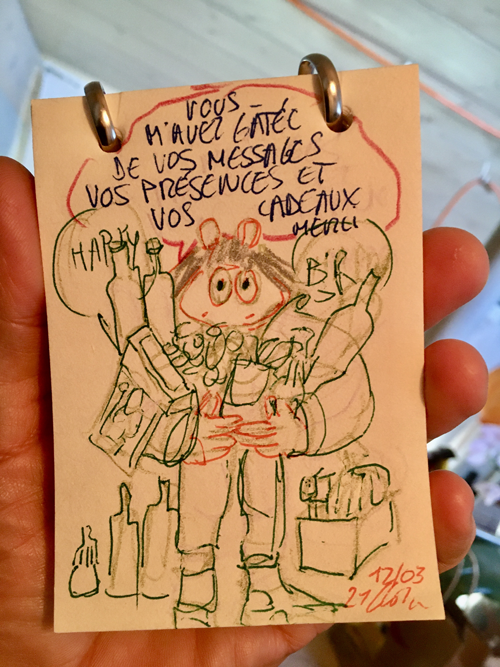 VOUS
M'AVEZ GATÉE
DE VOS MESSAGES
VOS PRÉSENCES ET
VOS CADEAUX
MERCI
HAPPY
BIR
12/03